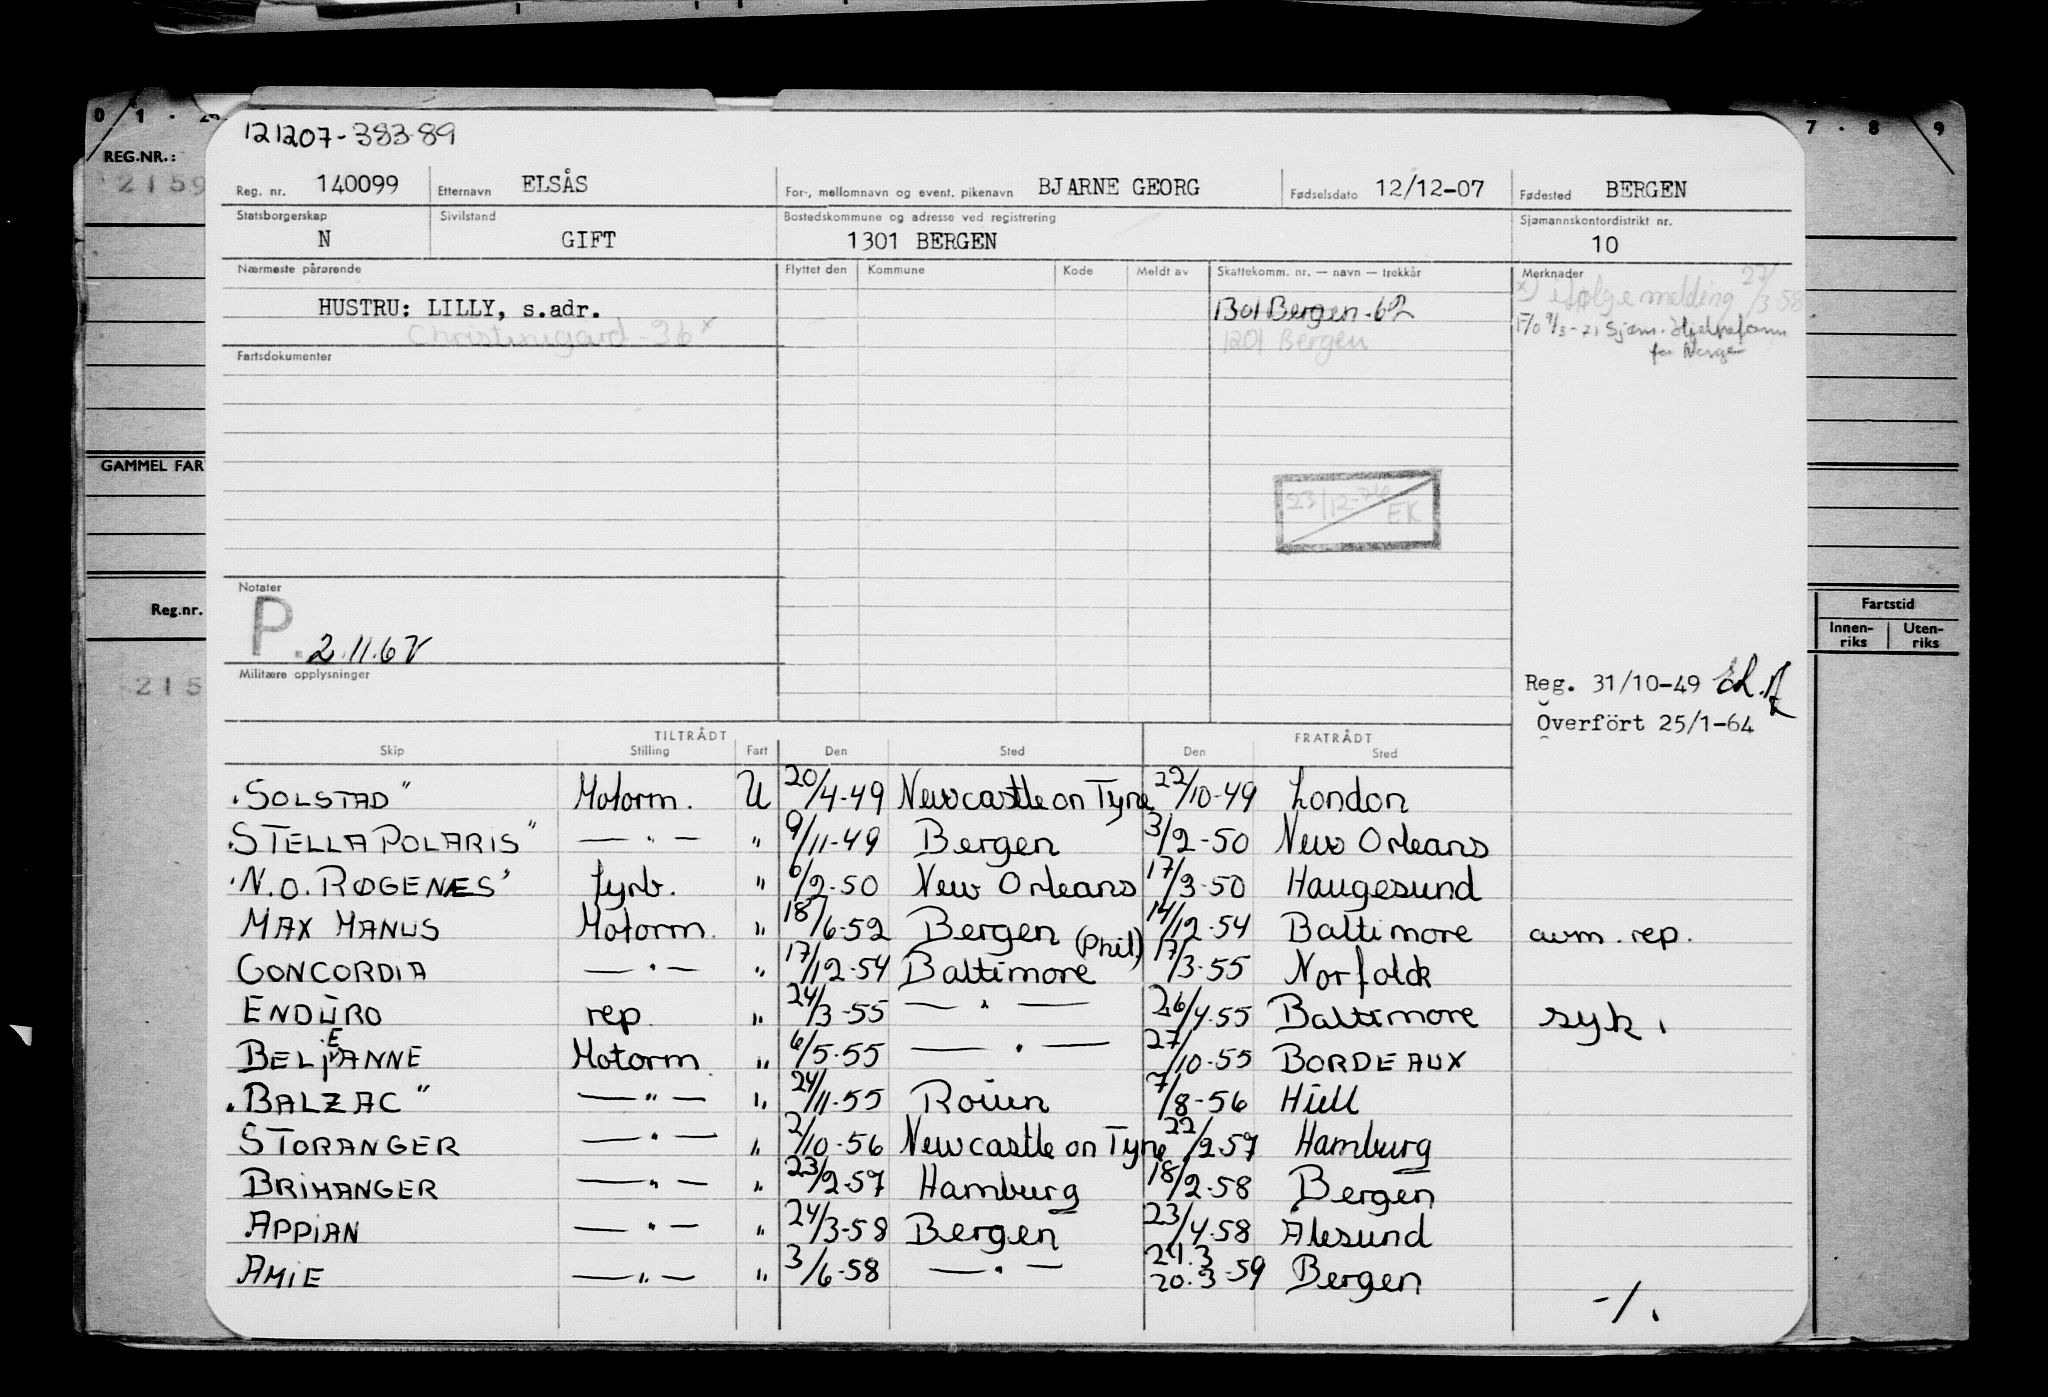 0 1 · 2
7 · 8 9
121207-38389
REG.NR.:
2159
Reg. nr. 140099 Etternavn ELSÅS For-, mellomnavn og event. pikenavn BJARNE GEORG Fødselsdato 12/12-07 Fødested BERGEN
Statsborgerskap Sivilstand Bostedskommune og adresse ved registrering Sjømannskontordistrikt nr.
N GIFT 1301 BERGEN 10
Nærmeste pårørende Flyttet den Kommune Kode Meldt av Skattekomm. nr. — navn — trekkår Merknader
x) ifølge melding 27/3-58
HUSTRU: LILLY, s.adr. 1301 Bergen - 62
Christinegård 36 x 1201 Bergen
Fartsdokumenter
for Norge
GAMMEL FAR
23/12- EK
Notater
P. 2.11.62
Reg.nr.
Fartstid
Innen-riks Uten-riks
Militære opplysninger
215
Reg. 31/10-49
Overfört 25/1-64
TILTRÅDT FRATRÅDT
Skip Stilling Fart Den Sted Den Sted
"SOLSTAD" Motorm. U 20/4-49 Newcastle on Tyne 22/10-49 London
"STELLA POLARIS" — " — " 9/11-49 Bergen 3/2-50 New Orleans
"N.O. RØGENÆS" fyrb. " 6/2-50 New Orleans 17/3-50 Haugesund
MAX MANUS Motorm. " 18/6-52 Bergen 14/12-54 Baltimore avm. rep.
CONCORDIA — " — " 17/12-54 Baltimore (Phil.) 17/3-55 Norfolck
ENDURO rep. " 24/3-55 — " — 26/4-55 Baltimore syk.
BELJEANNE Motorm. " 6/5-55 — " — 27/10-55 BORDEAUX
"BALZAC" — " — " 24/11-55 Rouen 7/8-56 Hull
STORANGER — " — " 2/10-56 Newcastle on Tyne 22/2-57 Hamburg
BRIMANGER — " — " 23/2-57 Hamburg 18/2-58 Bergen
APPIAN — " — " 24/3-58 Bergen 23/4-58 Ålesund
AMIE — " — " 3/6-58 — " — 21.3 20.3-59 Bergen
-/.